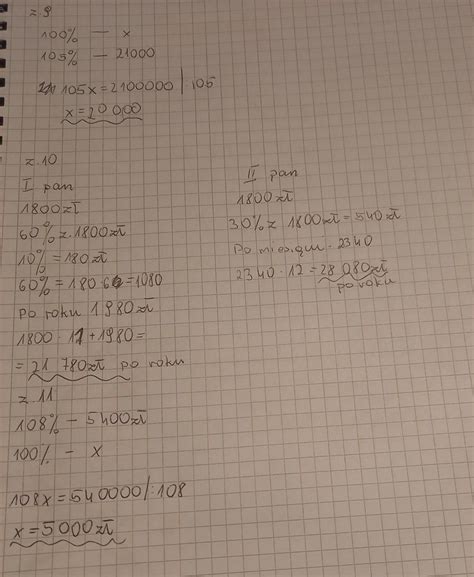 z.9
100% — x
105% — 21000
105x = 2100000 | 105
x = 20 000
z.10
I pan
1800zł
60% z 1800zł
10% = 180zł
60% = 180 · 6 = 1080
Po roku 1980zł
1800 · 11 + 1980 =
= 21 780zł po roku
II pan
1800zł
30% z 1800zł = 540zł
Po miesiącu - 2340
2340 · 12 = 28 080zł
po roku
z.11
108% — 5400zł
100% — x
108x = 540000 / : 108
x = 5000zł